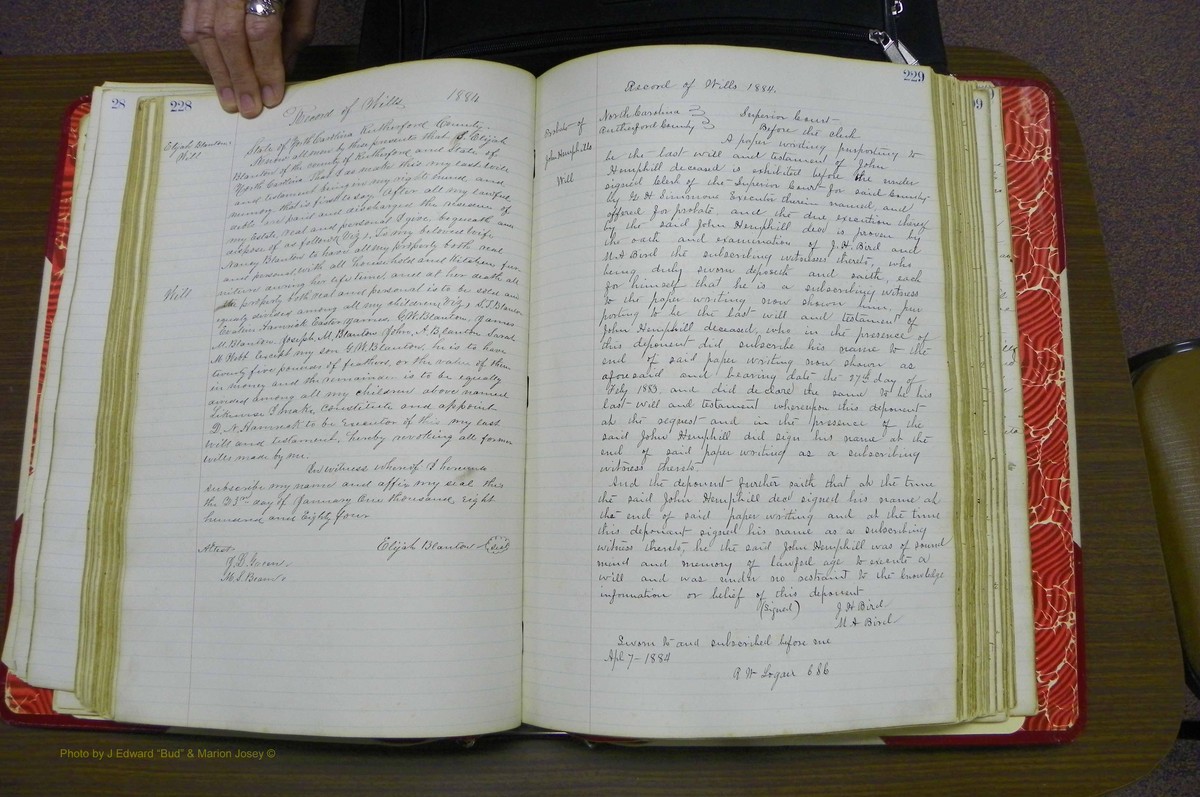 28
228
Record of Wills, 1884
Elijah Blanton
Will
State of North Carolina Rutherford County.
Know all men by these presents that I, Elijah
Blanton of the county of Rutherford and State of
North Carolina That I do make this my last will
and testament being in my right mind, and
memory that is first to say After all my lawful
debts are paid and discharged the residue of
my Estate, real and personal I give, bequeath and
dispose of as follows, Viz, To my beloved wife,
Nancy Blanton to have all my property both real
and personal, with all household and kitchen fur-
niture during her life time, and at her death all
Will
the property both real and personal is to be sold and
equaly devided among all my children, Viz, S. J. Blanton
Hamrick Easter James. G. W. Blanton. James
M. Blanton, Joseph, M. Blanton, John, A. Blanton Sarah
M. Webb Except my son G. W. Blanton, he is to have
twenty five pounds of feathers, or the value of them
in money and the remainder is to be equally
devided among all my children above named
Likewise I make constitute and appoint
D. N. Hamrick to be Executor of this my last
will and testament, hereby revoking all former
wills made by me.
In witness whereof I hereunto
subscribe my name and affix my seal this
the day of January One thousand, eight
hundred and Eighty four
Elijah Blanton (Seal)
Attest
M. S. Beam
229
Record of Wills 1884.
Probate of
John Hemphills
Will
North Carolina } Superior Court
Rutherford County } Before the clerk
A paper writing purporting to
be the last will and testament of John
Hemphill deceased is exhibited before the under
signed Clerk of the Superior Court for said County
by G. H. Simmons Executor therein named, and
offered for probate, and the due execution thereof
by the said John Hemphill decd is proven by
the oath and examination of J. H. Bird and
M A Bird the subscribing witnesses thereto, who
being duly sworn deposeth and saith, each
for himself that he is a subscribing witness
to the paper writing now shown him, pur
porting to be the last will and testament of
John Hemphill deceased, who in the presence of
this deponent did subscribe his name to the
end of said paper writing now shown as
aforesaid and bearing date the 27th day of
Feby 1883, and did declare the same to be his
last will and testament whereupon this deponent
at the request and in the presence of the
said John Hemphill did sign his name at the
end of said paper writing as a subscribing
witness thereto
And the deponent further saith that at the time
the said John Hemphill decd signed his name at
the end of said paper writing and at the time
this deponant signed his name as a subscribing
witness thereto, he the said John Hemphill was of sound
mind and memory of lawful age to execute a
will and was under no restraint to the knowledge
information or belief of this deponent
(Signed) J H Bird
M A Bird
Sworn to and subscribed before me
Apl 7- 1884
Photo by J Edward "Bud" & Marion Josey ©